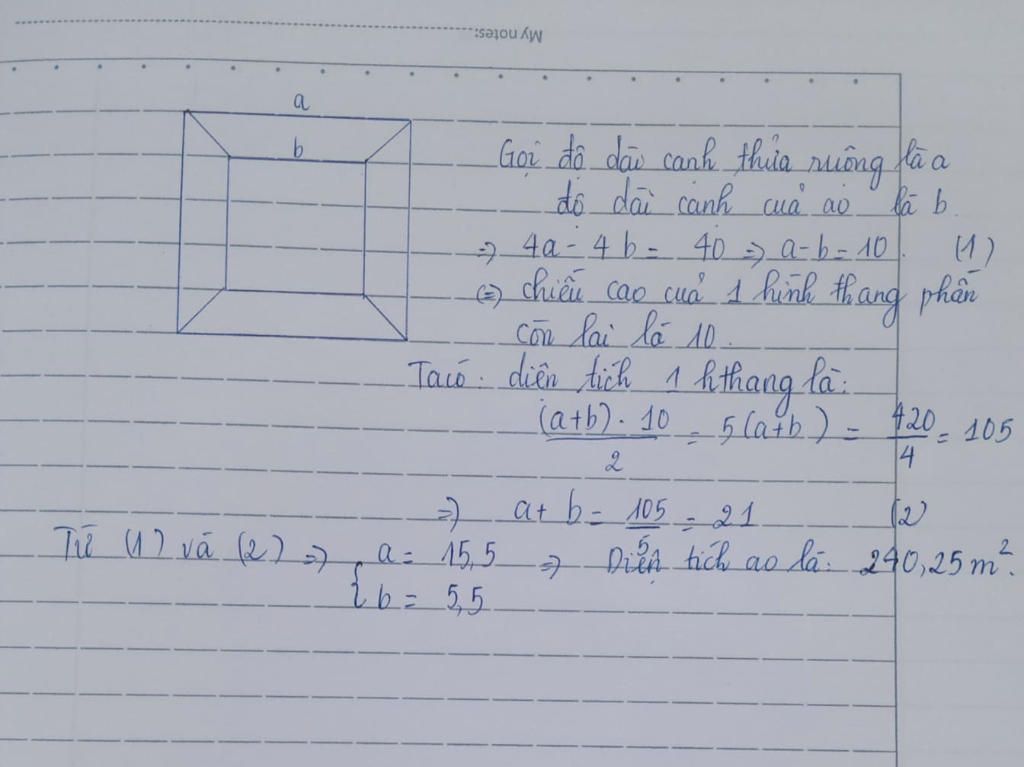 My notes:
a
b
Gọi độ dài cạnh thửa ruộng là a
độ dài cạnh của ao là b.
=> 4a - 4b = 40 => a-b = 10. (1)
(=) chiều cao của 1 hình thang phần
còn lại là 10.
Ta có. diện tích 1 hthang là:
(a+b) . 10 / 2 = 5(a+b) = 420/4 = 105
=> a+ b = 105/5 = 21 (2)
Từ (1) và (2) => { a = 15,5 => Diện tích ao là: 240,25m².
b = 5,5